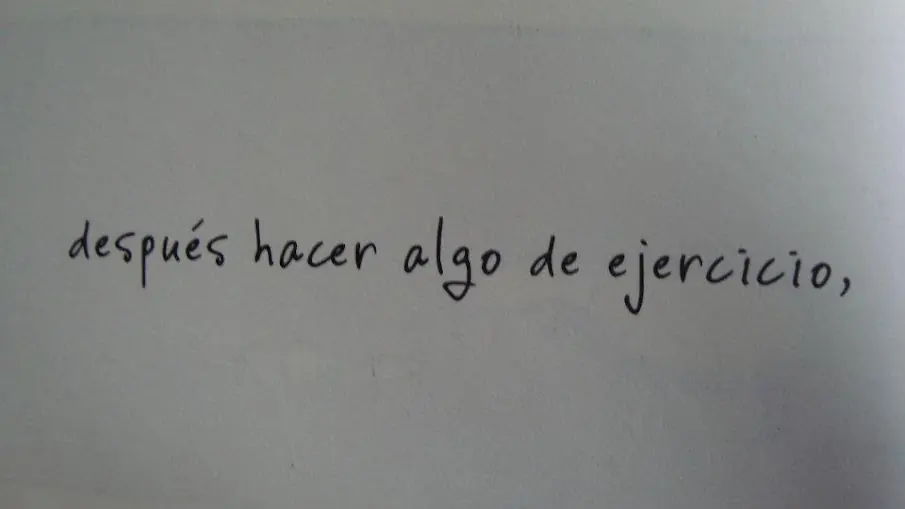 después hacer algo de ejercicio,